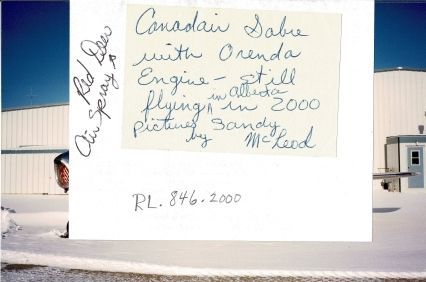 Canadair Sabre
with Orenda
Engine - still
flying in Alberta in 2000
pictures Sandy
by McLeod
Air Spray
RL. 846.2000